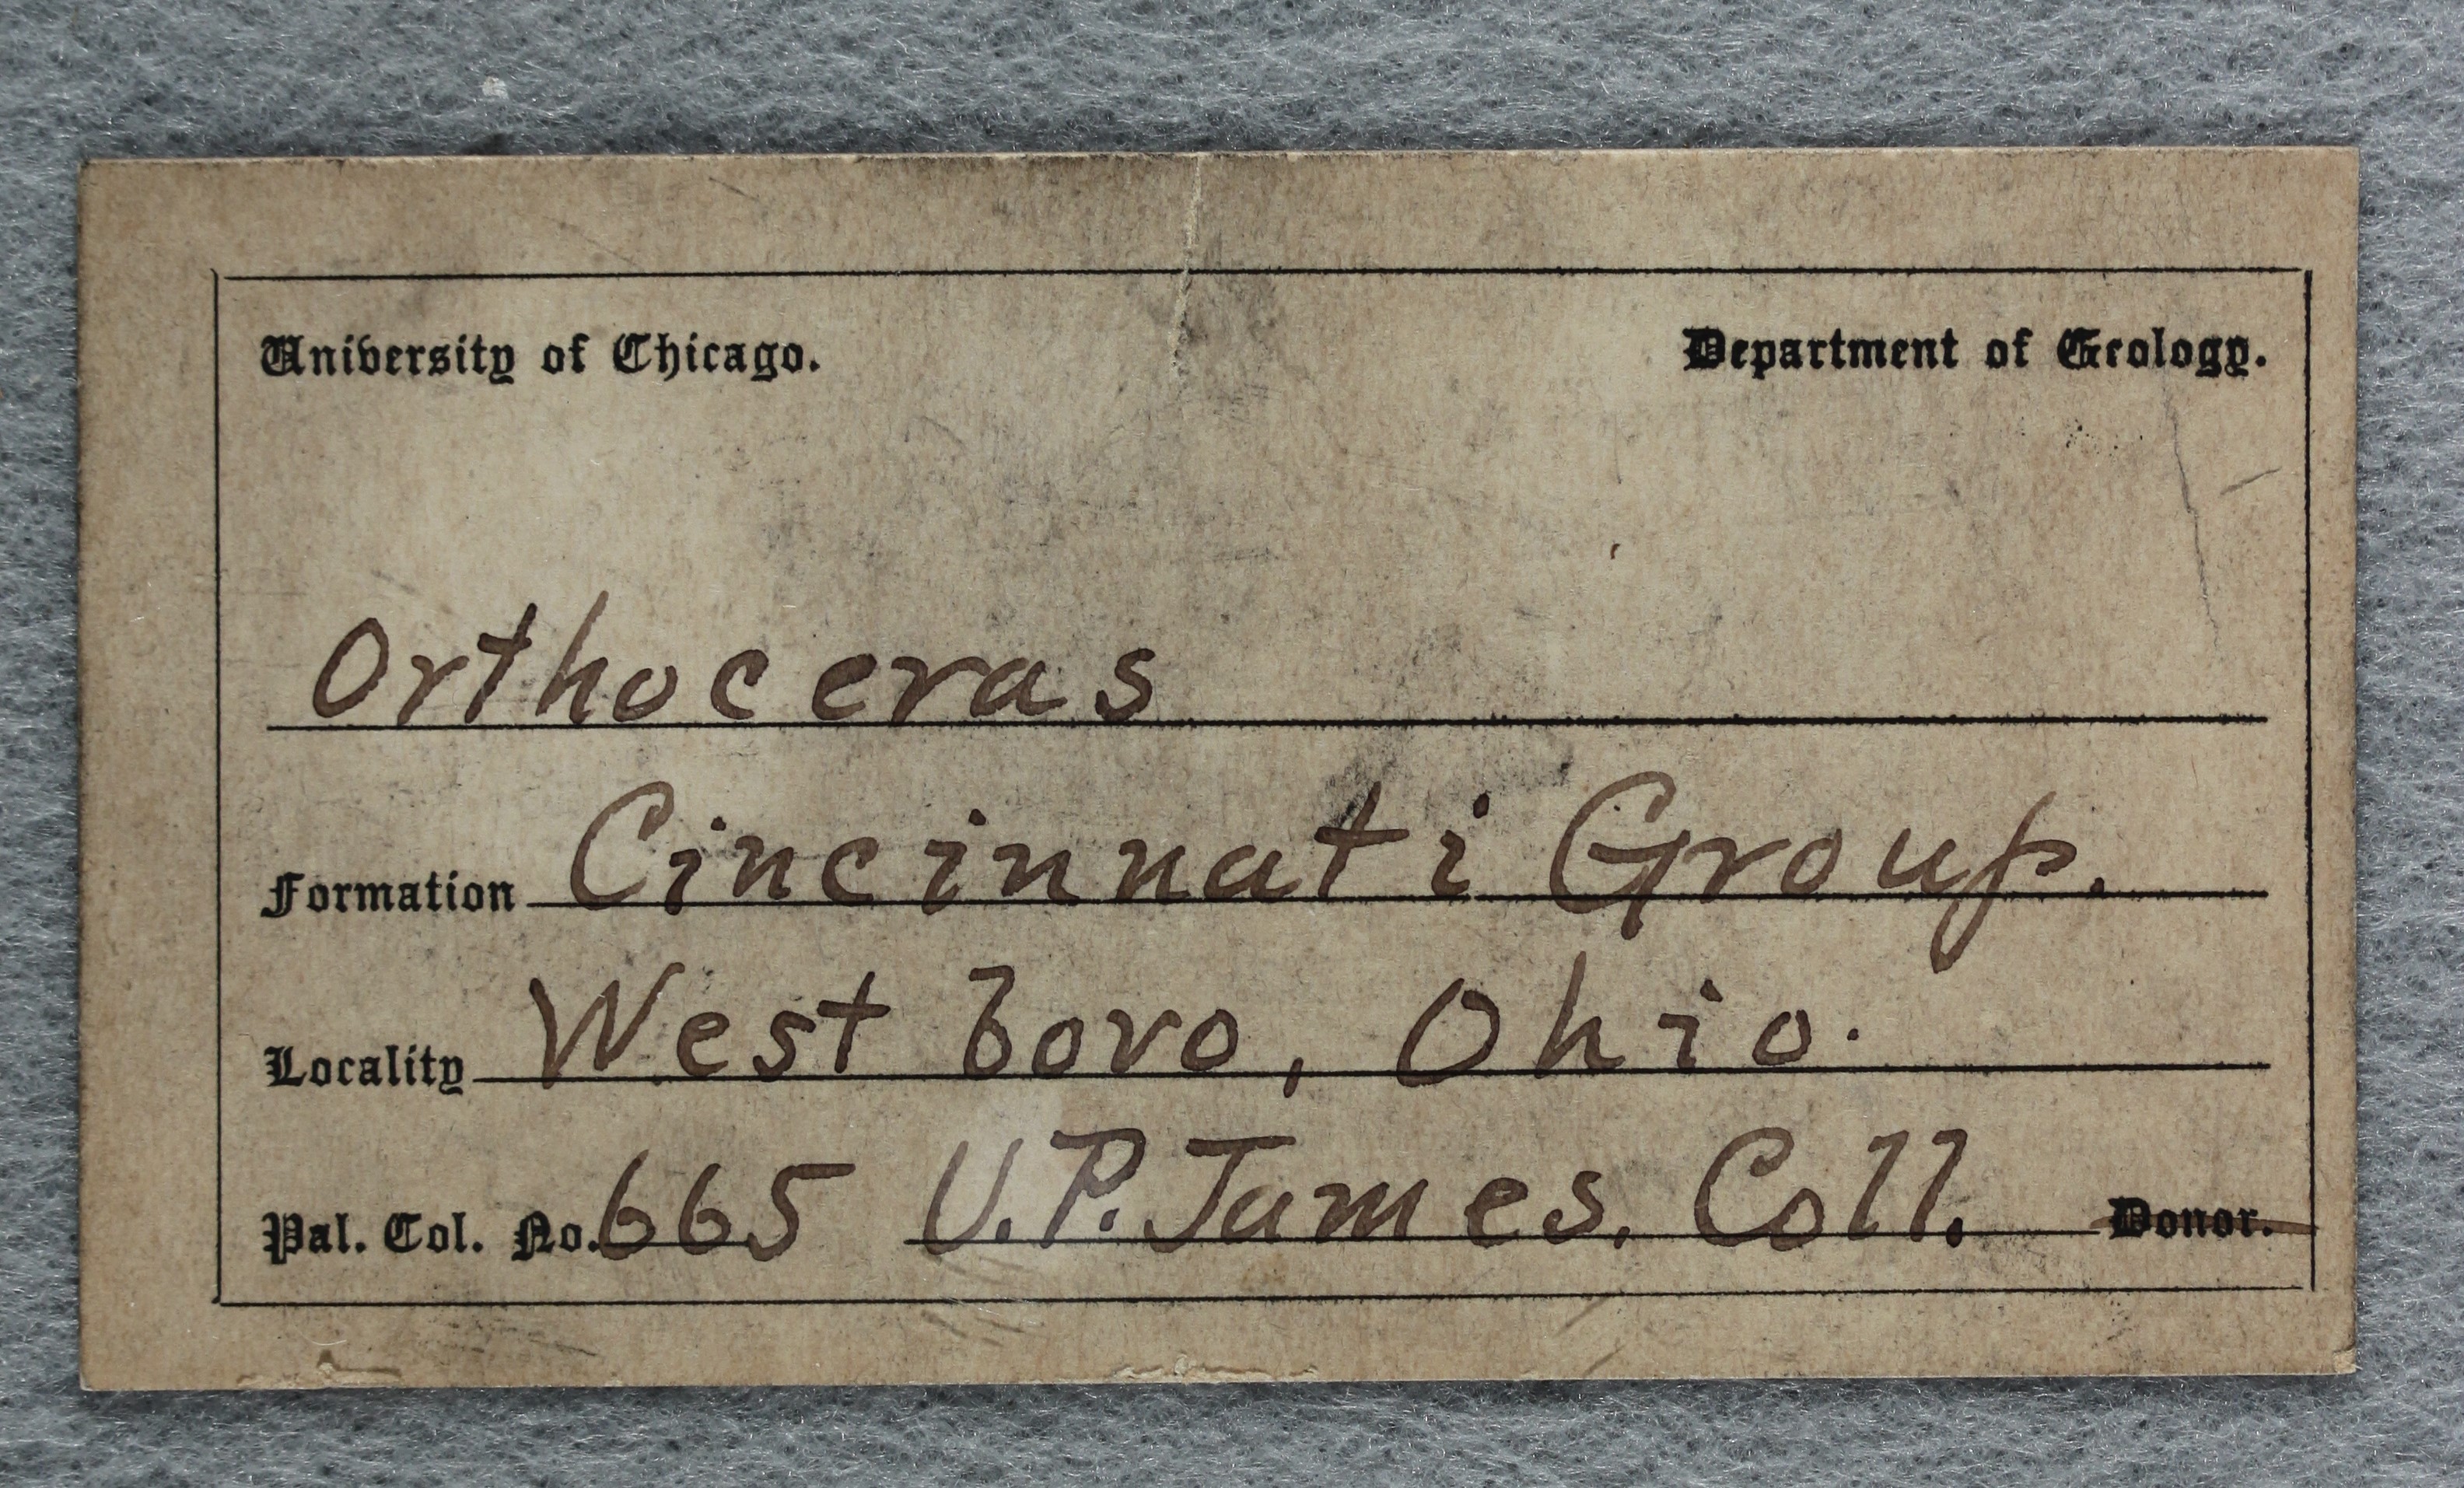 University of Chicago. Department of Geology.
Orthoceras
Formation Cincinnati Group.
Locality West boro, Ohio.
Pal. Col. No. 665 U.P. James. Coll. Donor.